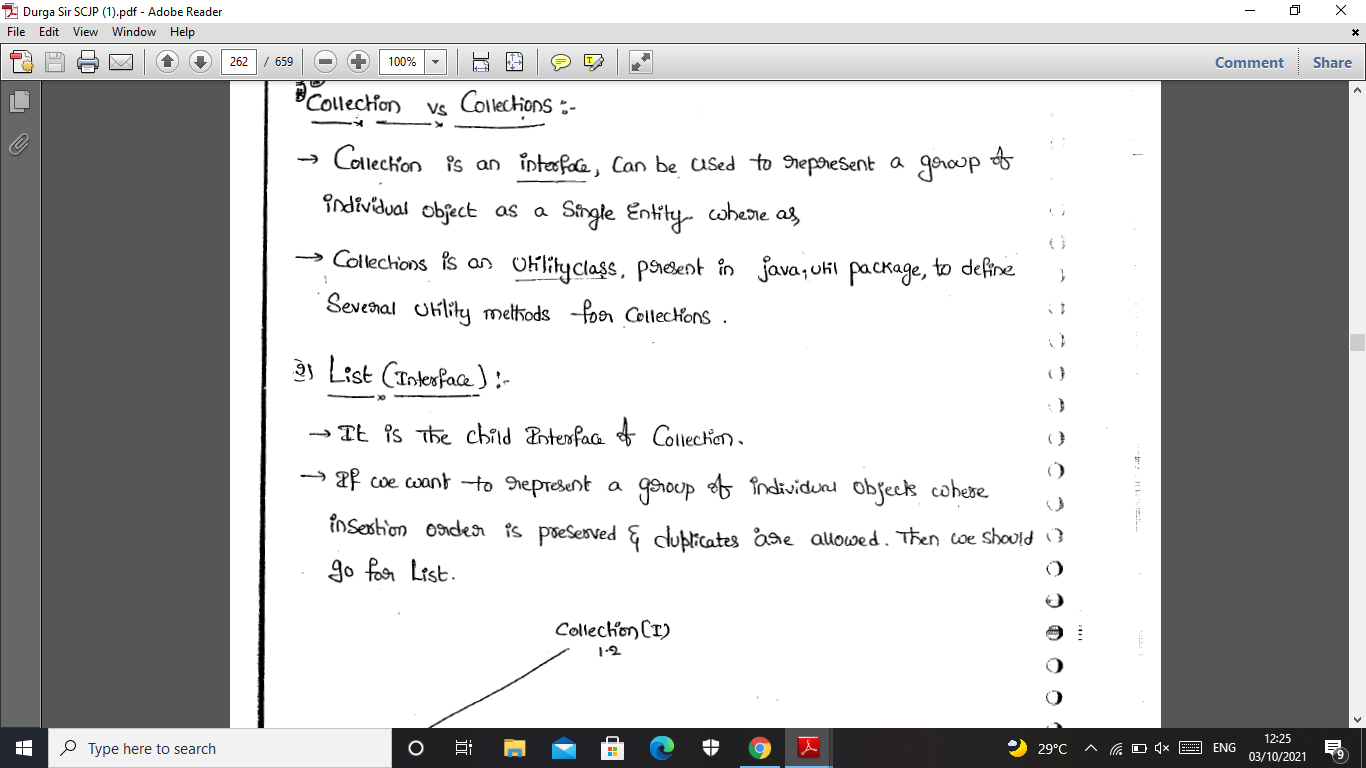 Durga Sir SCJP (1).pdf - Adobe Reader
File Edit View Window Help
262 / 659 100% Comment Share
Collection vs Collections :-
→ Collection is an interface, Can be used to represent a group of
individual object as a Single Entity where as,
→ Collections is an Utility class, present in java.util package, to define
Several Utility methods for Collections.
2) List (Interface) :-
→ It is The child Interface of Collection.
→ If we want to represent a group of individual objects where
insertion order is preserved & duplicates are allowed. Then we should
go for List.
Collection (I)
1.2
Type here to search
29°C
ENG
12:25
03/10/2021
9